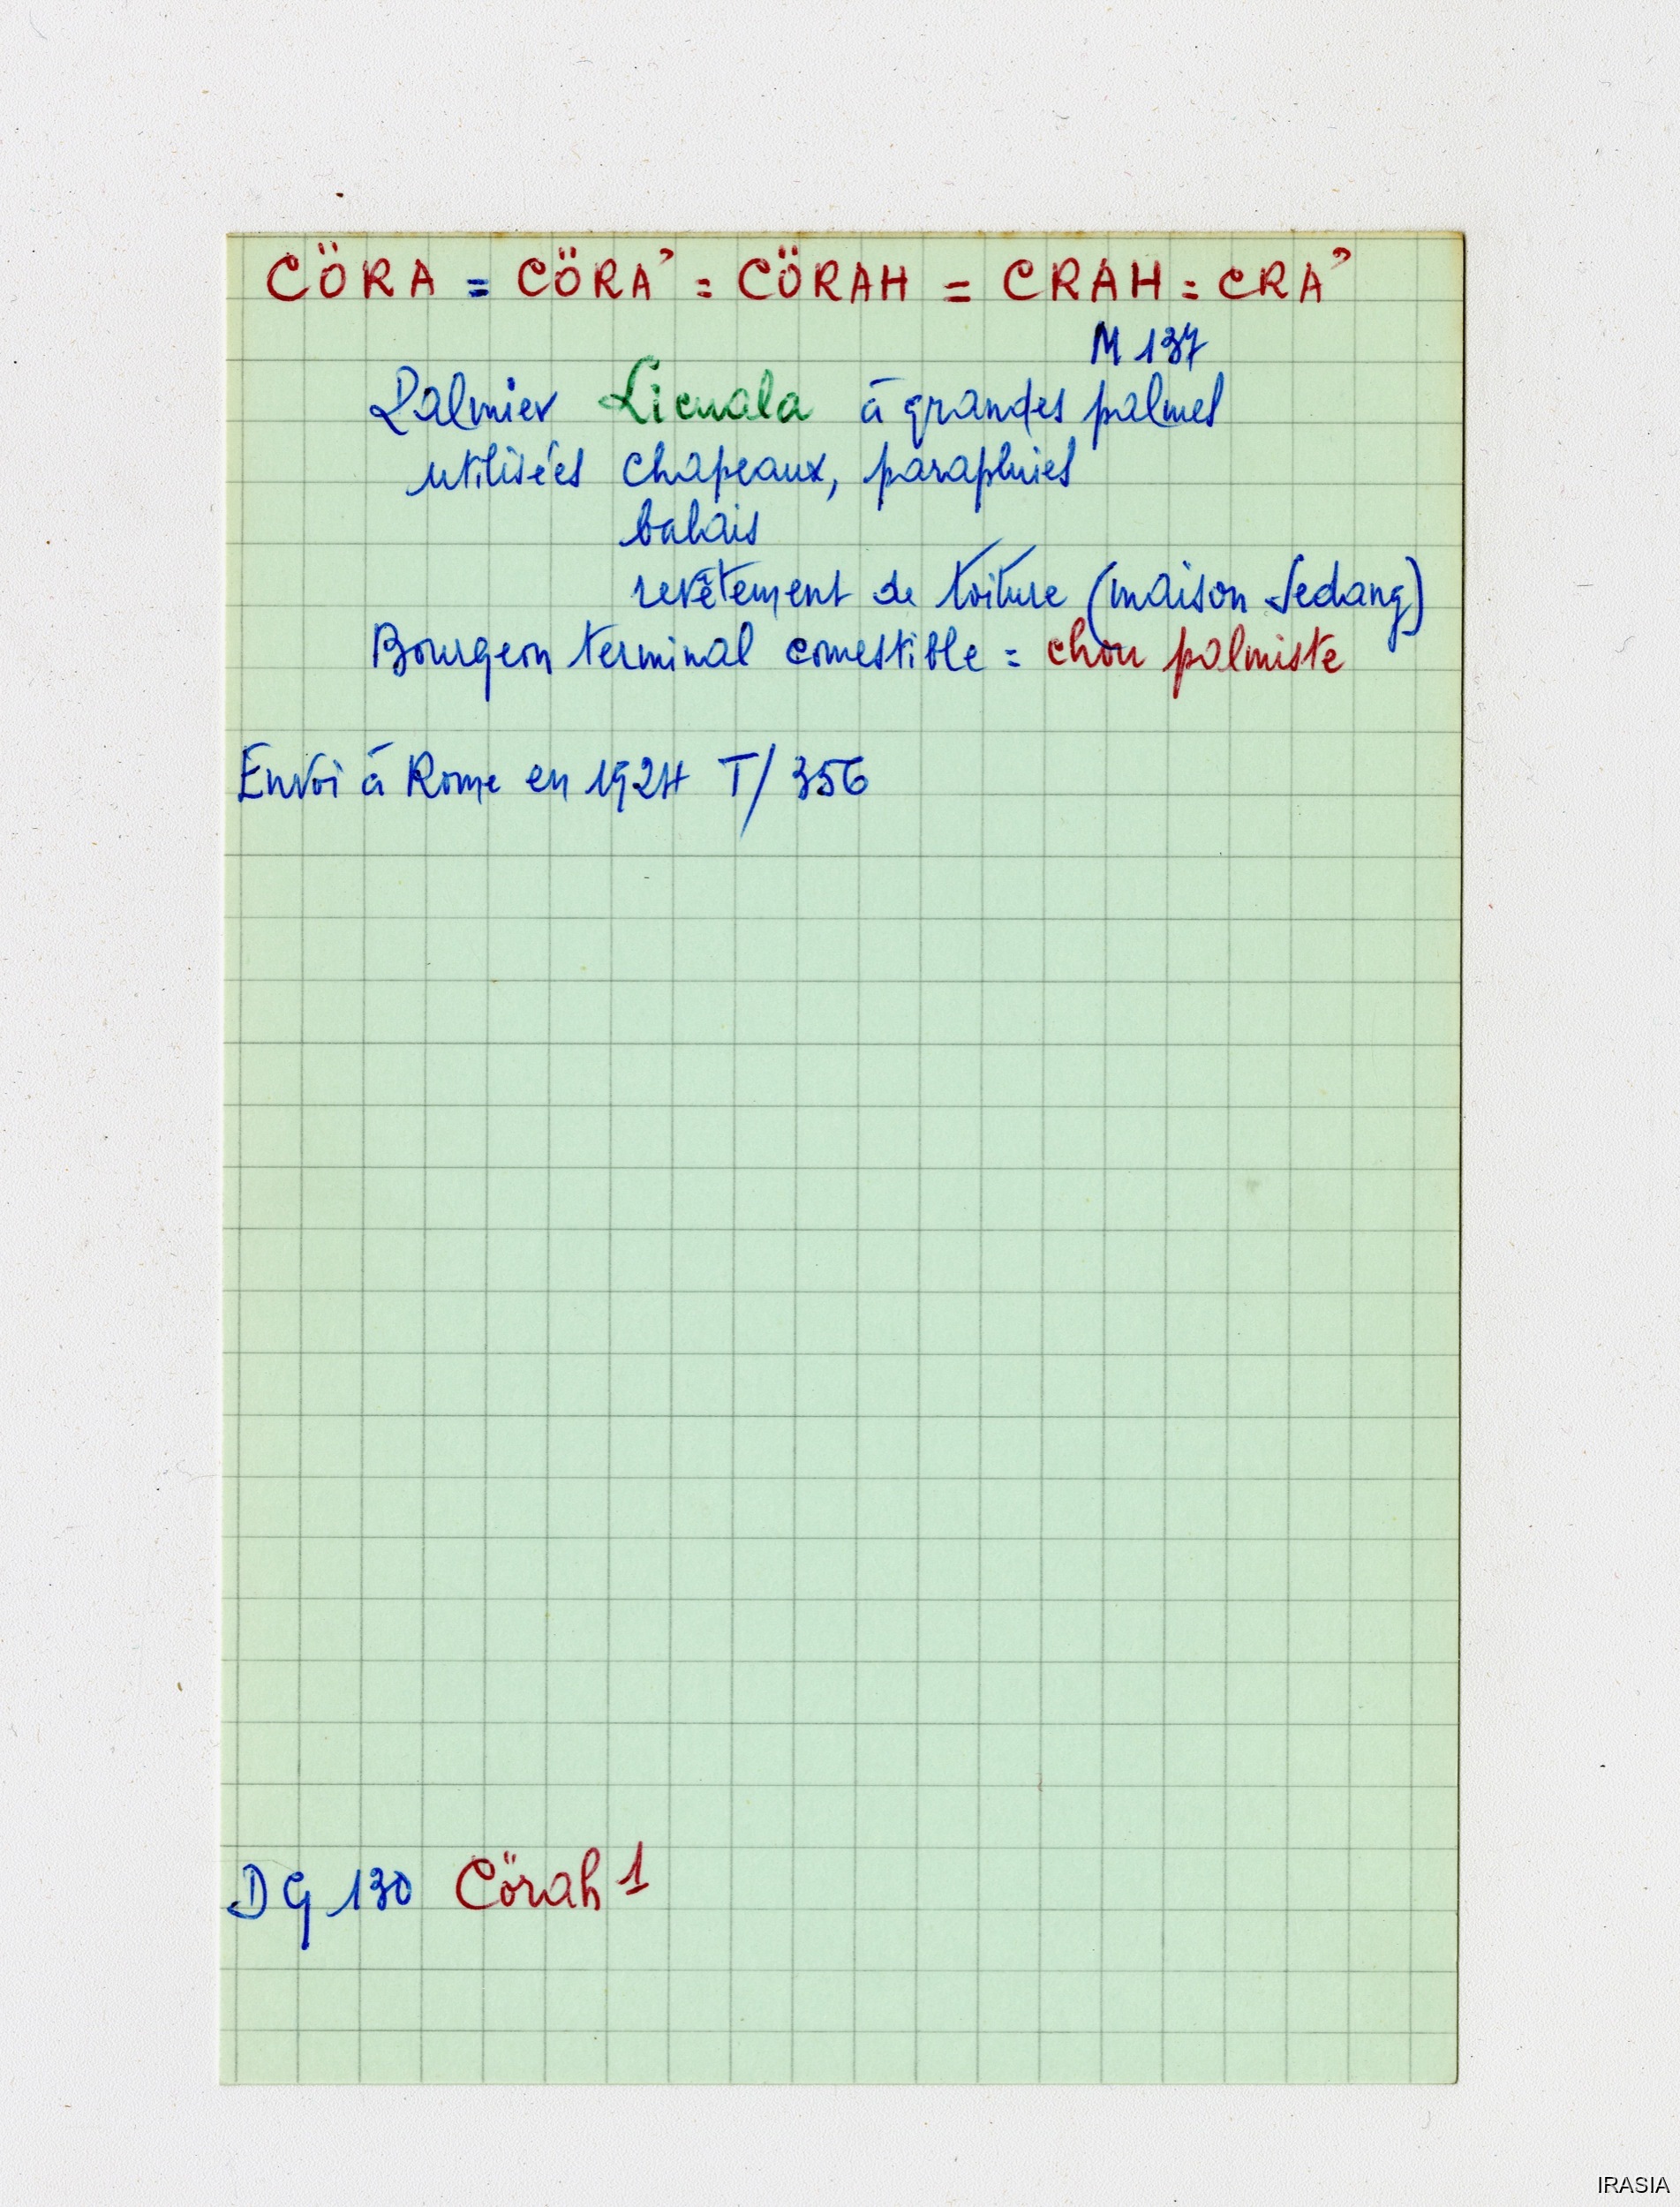 CÖRA = CÖRA' = CÖRAH = CRAH = CRA'
M 137
Palmier Licuala à grandes palmes
utilisées chapeaux, parapluies
balais
revêtement de toiture (maison Sedang)
Bourgeon terminal comestible = chou palmiste
Envoi à Rome en 1924 T/356
DG 130 Cörah 1
IRASIA